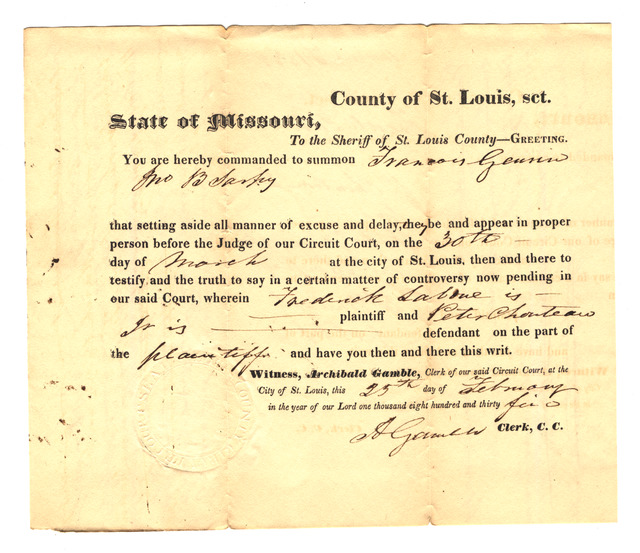 County of St. Louis, sct.
State of Missouri,
To the Sheriff of St. Louis County—GREETING.
You are hereby commanded to summon Francois
Jno B Sarpy
that setting aside all manner of excuse and delay, they be and appear in proper
person before the Judge of our Circuit Court, on the 30th
day of March at the city of St. Louis, then and there to
testify and the truth to say in a certain matter of controversy now pending in
our said Court, wherein Frederick is
plaintiff and Peter Chouteau
Jr is defendant on the part of
the plaintiff and have you then and there this writ.
Witness, Archibald Gamble, Clerk of our said Circuit Court, at the
City of St. Louis, this 25th day of February
in the year of our Lord one thousand eight hundred and thirty
A Gamble Clerk, C. C.